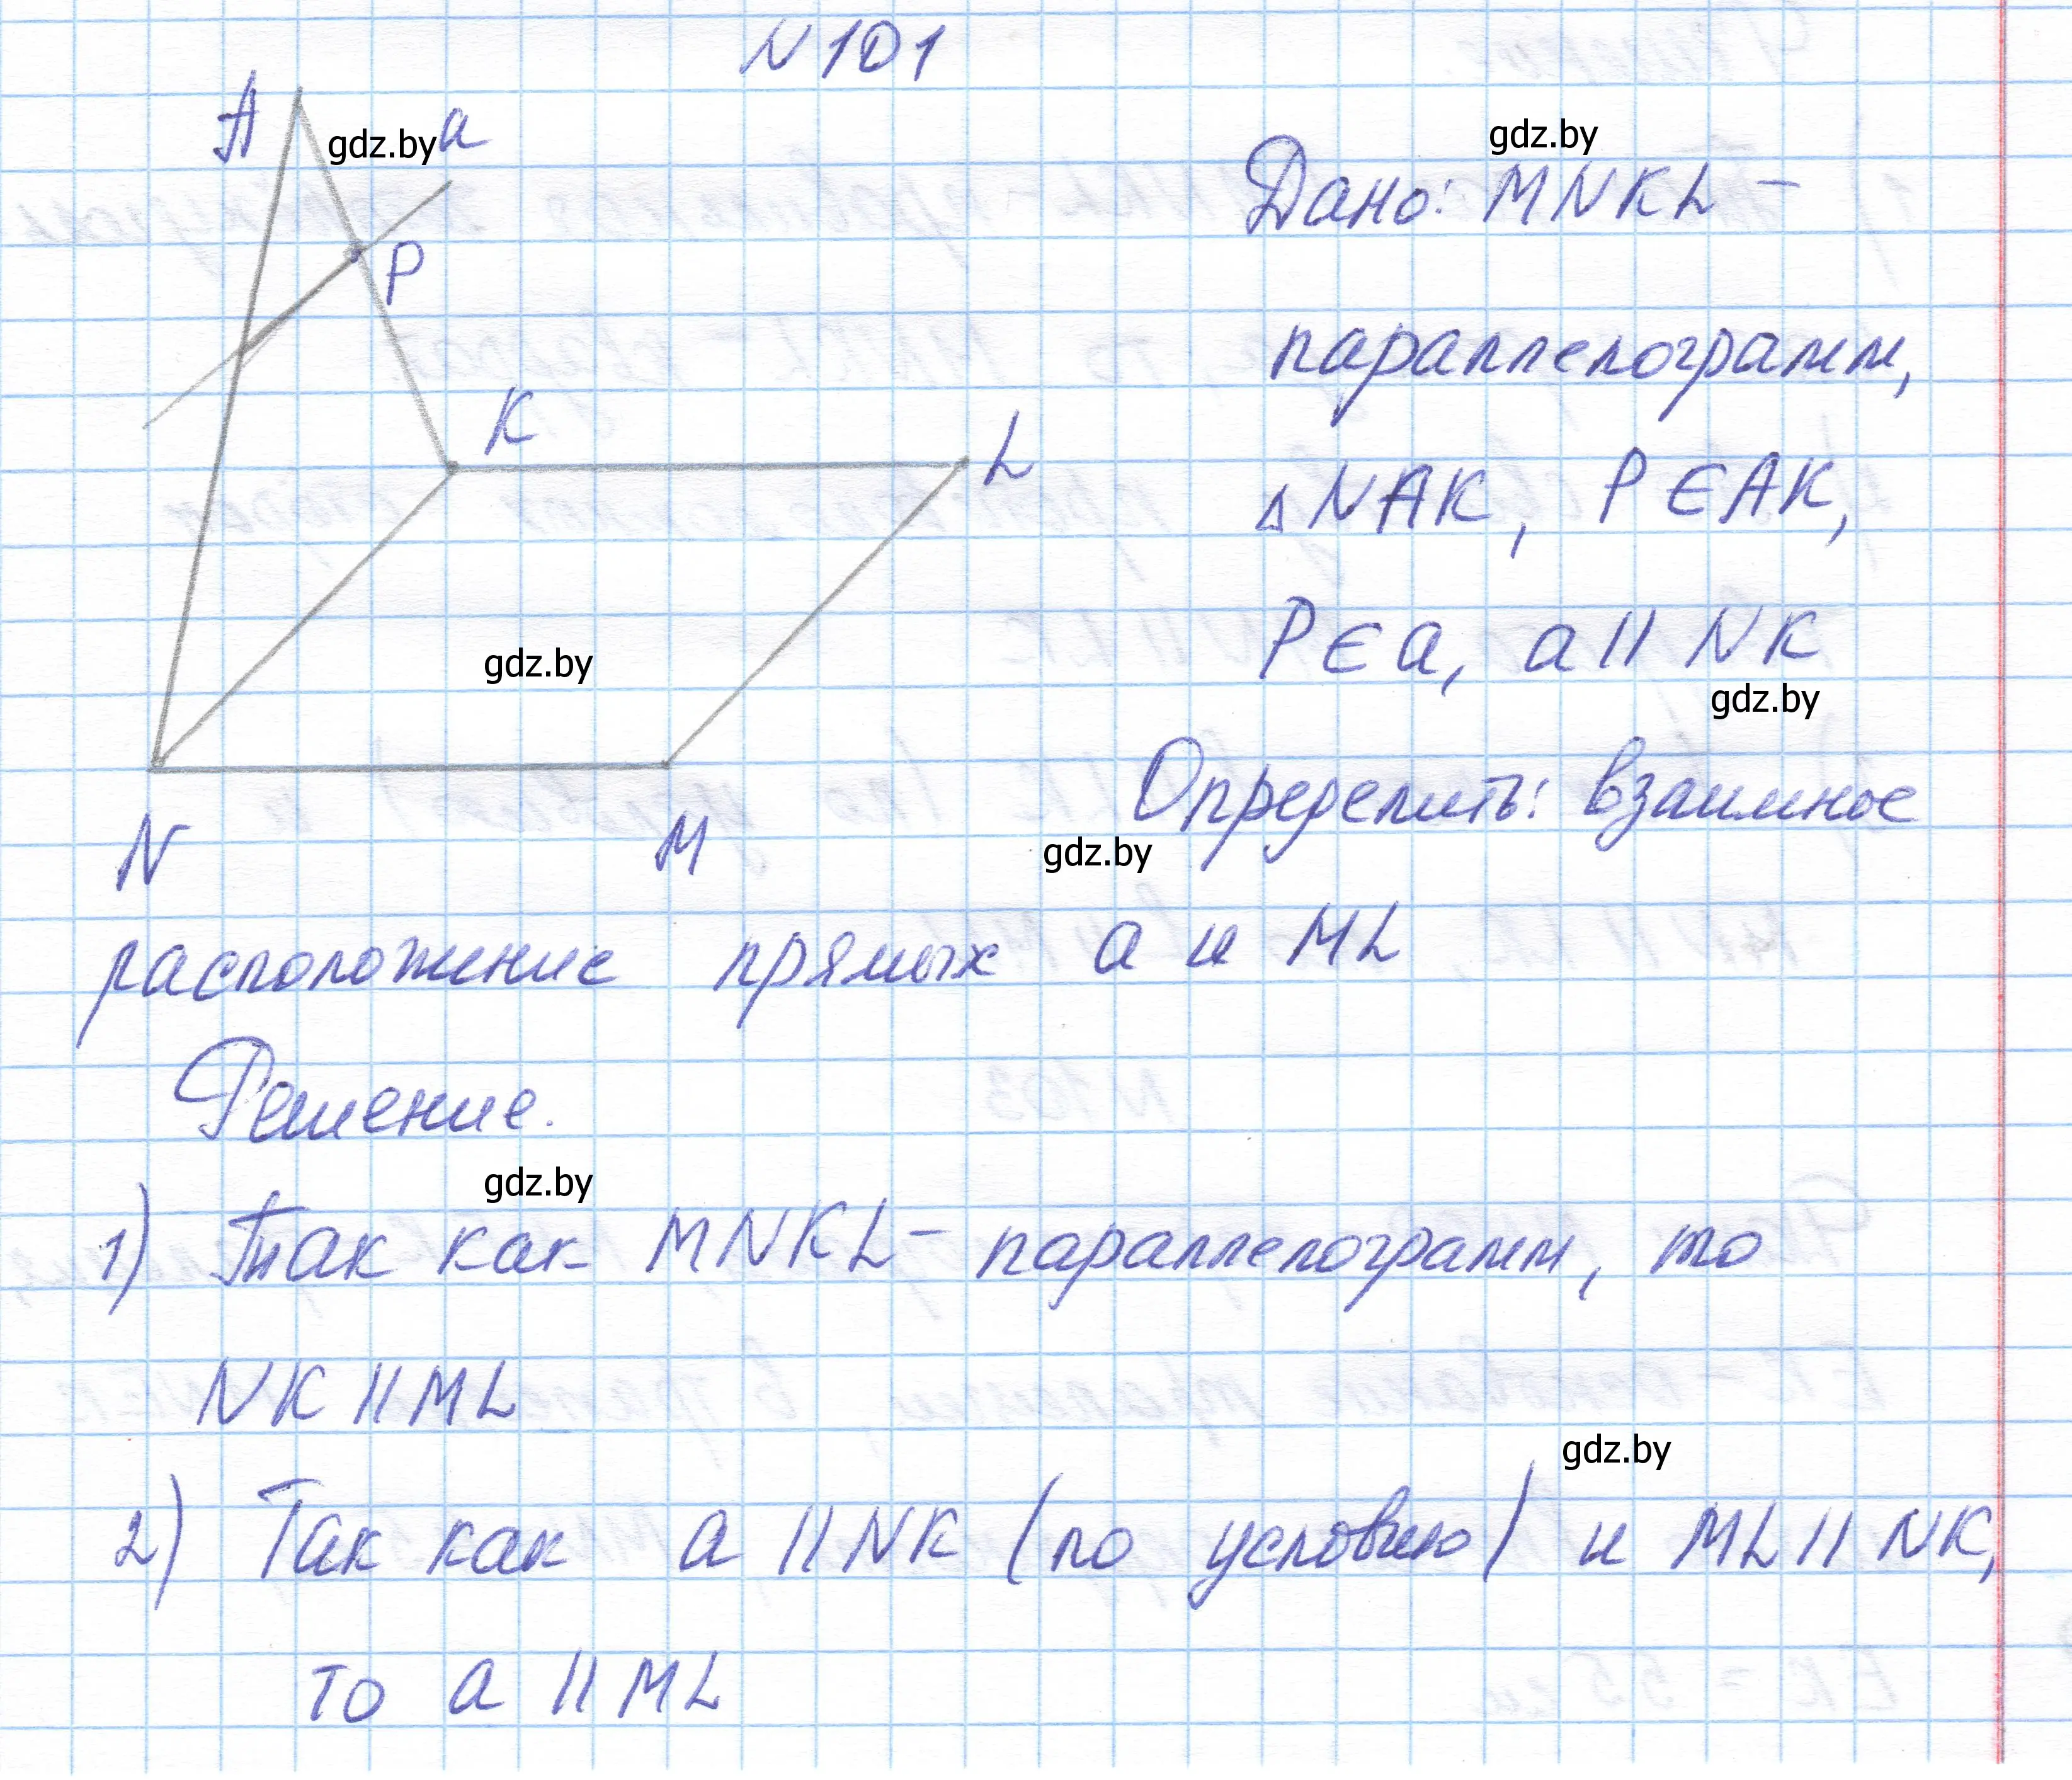 N 101
A
gdz.by a
P
K
L
N
M
gdz.by
gdz.by
Дано: MNKL –
параллелограмм,
△NAK, P∈AK,
P∈a, a || NK
gdz.by
Определить: взаимное
gdz.by
расположение прямых a и ML
Решение.
gdz.by
1) Так как MNKL – параллелограмм, то
NK || ML
gdz.by
2) Так как a || NK (по условию) и ML || NK,
то a || ML